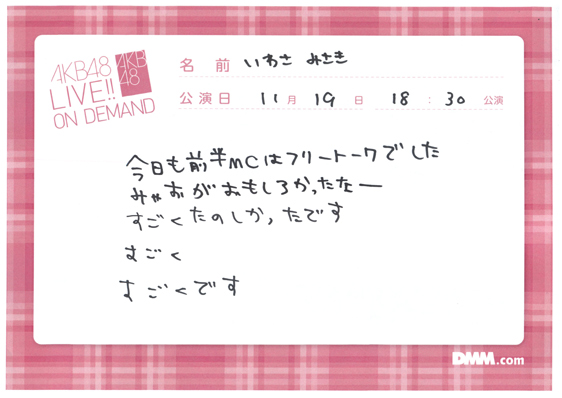 AKB48
LIVE!!
ON DEMAND
AKB
48
名前 いわさ みさき
公演日 11月19日 18:30公演
今日も前半MCはフリートークでした
みゃおがおもしろかったなー
すごくたのしかったです
すごく
すごくです
DMM.com